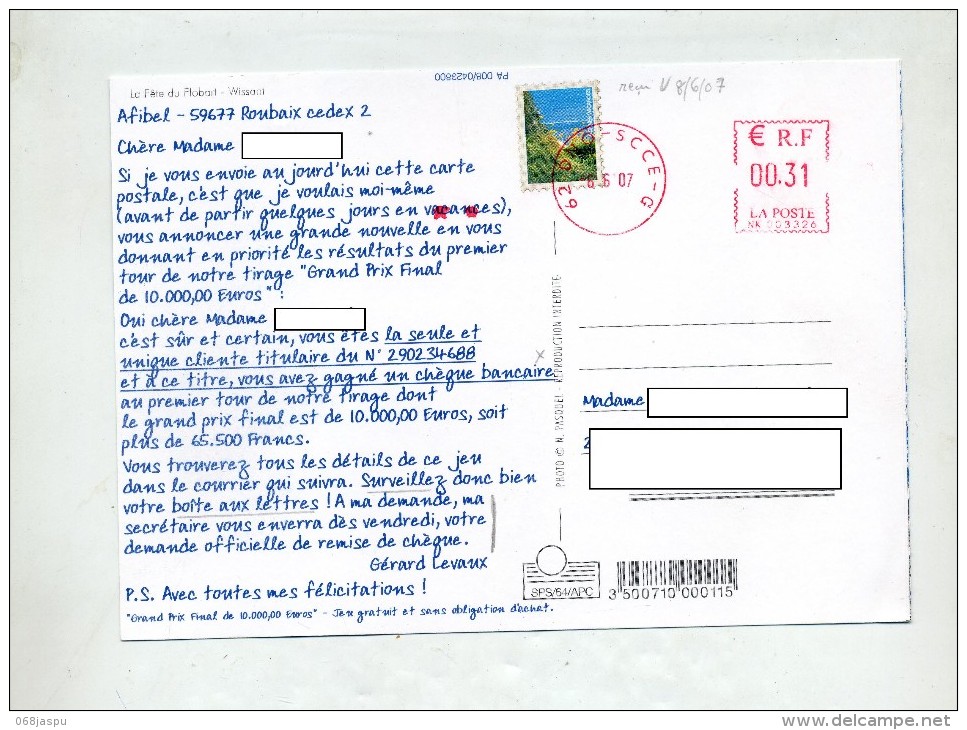 La Fête du Flobart - Wissant
PA 008/0423600
reçu V 8/6/07
Afibel - 59677 Roubaix cedex 2
Chère Madame
Si je vous envoie aujourd'hui cette carte
postale, c'est que je voulais moi-même
(avant de partir quelques jours en vacances),
vous annoncer une grande nouvelle en vous
donnant en priorité les résultats du premier
tour de notre tirage "Grand Prix Final
de 10.000,00 Euros" :
Oui chère Madame
c'est sûr et certain, vous êtes la seule et
unique cliente titulaire du N° 290234688
et à ce titre, vous avez gagné un chèque bancaire
au premier tour de notre tirage dont
le grand prix final est de 10.000,00 Euros, soit
plus de 65.500 Francs.
Vous trouverez tous les détails de ce jeu
dans le courrier qui suivra. Surveillez donc bien
votre boîte aux lettres ! A ma demande, ma
secrétaire vous enverra dès vendredi, votre
demande officielle de remise de chèque.
Gérard Levaux
P.S. Avec toutes mes félicitations !
"Grand Prix Final de 10.000,00 Euros" - Jeu gratuit et sans obligation d'achat.
PHOTO © N. PASQUEL - REPRODUCTION INTERDITE
SCCE-G
6 6 07
€ R.F
00.31
LA POSTE
NK 003326
Madame
SPS/64/APC
3 500710 000115
068jaspu
www.delcampe.net